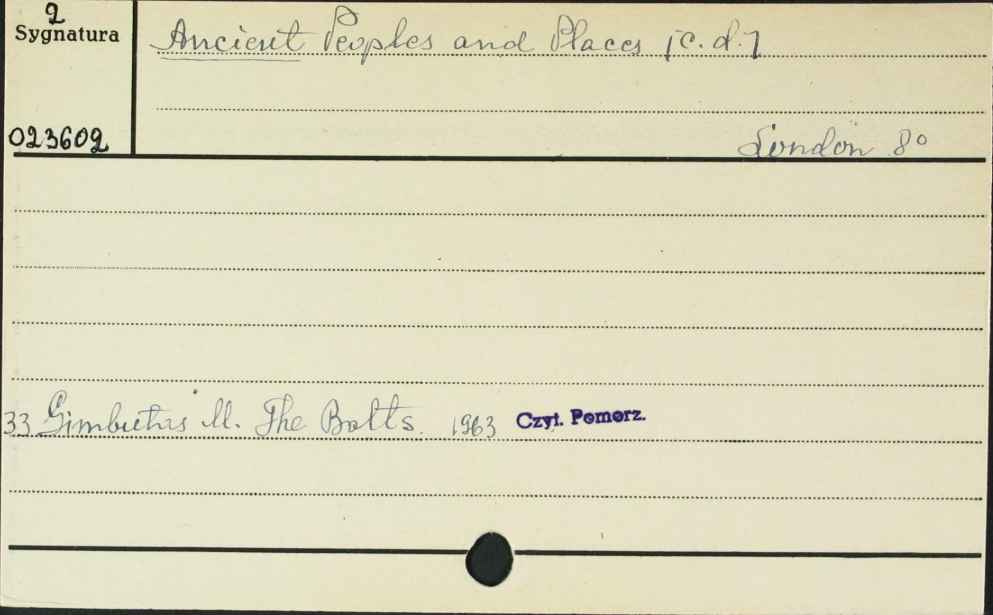 2
Sygnatura
Ancient Peoples and Places [c.d.]
023602
London 8°
33 Gimbutas M. The Balts. 1963 Czyt. Pomorz.